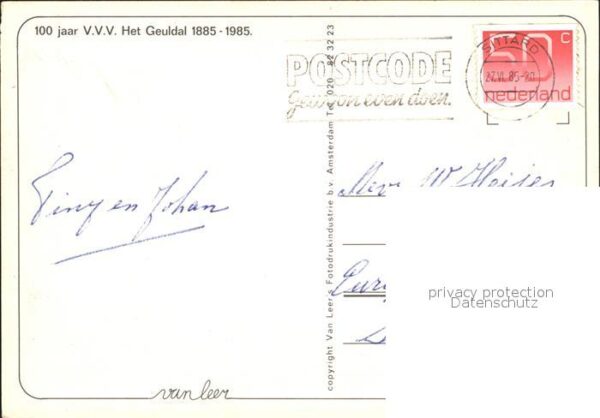 100 jaar V.V.V. Het Geuldal 1885 - 1985.
POSTCODE
Gewoon even doen.
SITTARD
27.VI.85-20
50 C
nederland
Tiny en Johan
Mevr W
copyright Van Leer's Fotodrukindustrie b.v. Amsterdam Tel. 020 - 82 32 23
privacy protection
Datenschutz
van leer